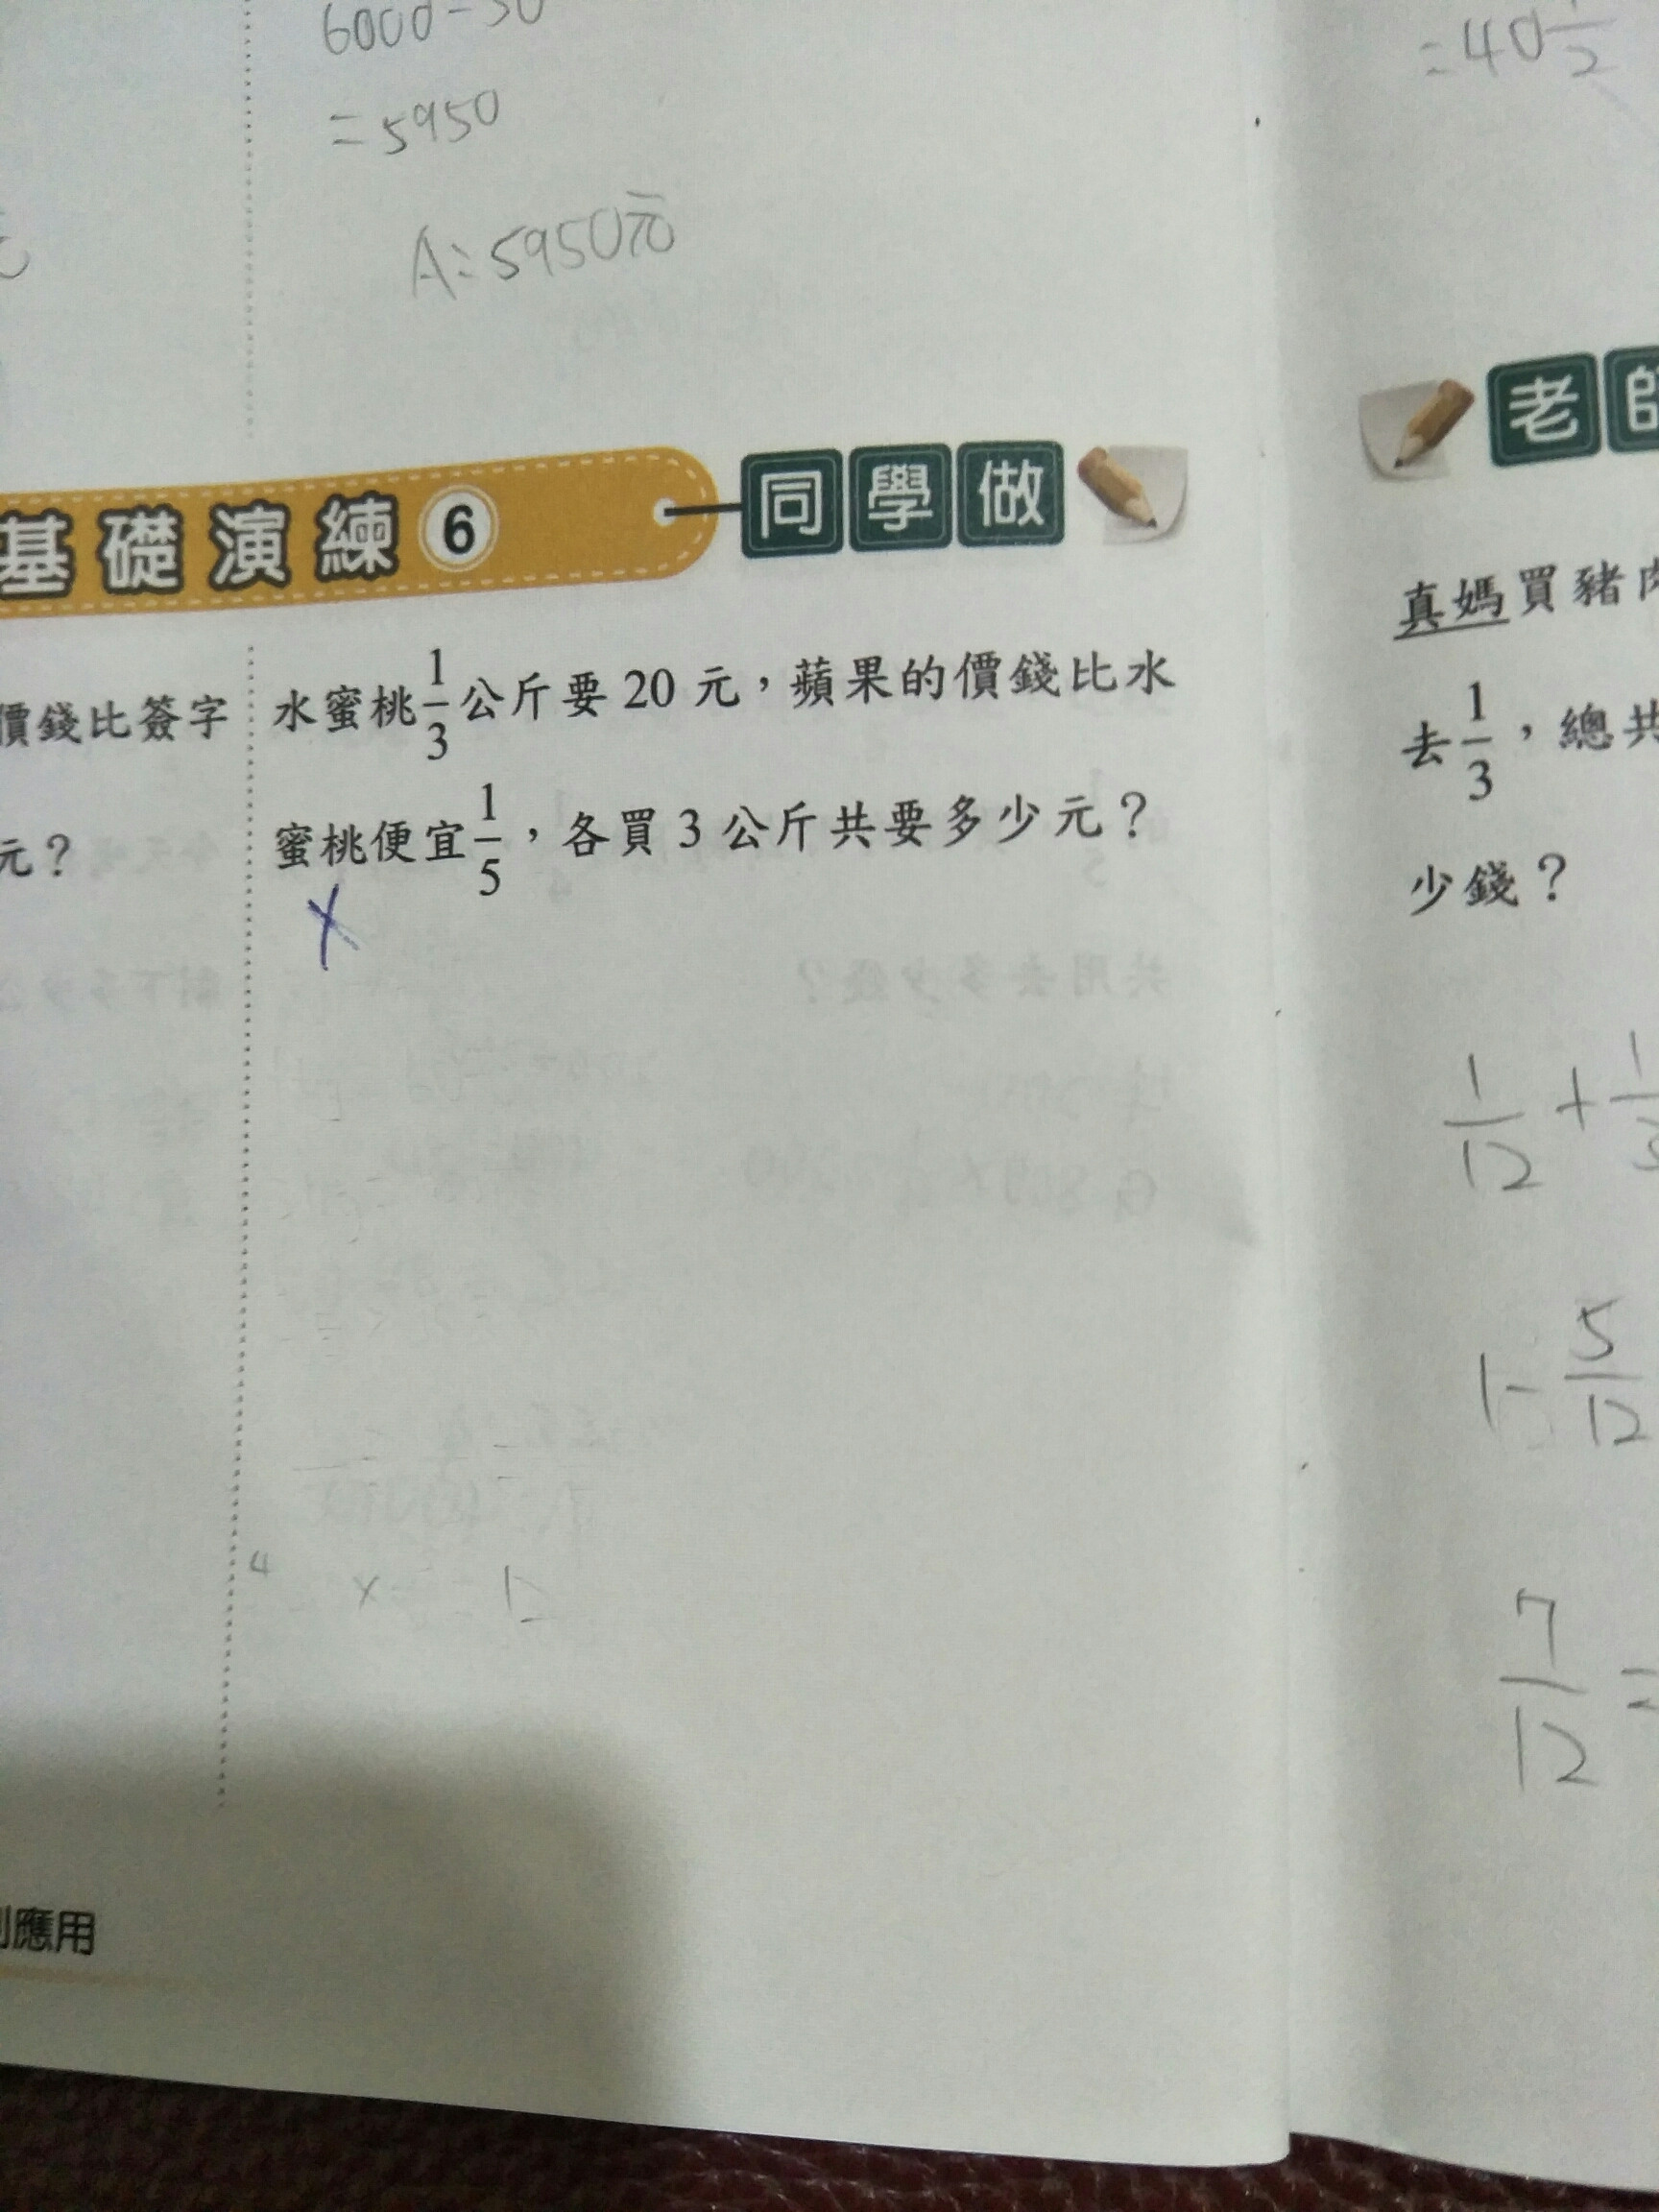 6000-50
=5950
A:5950元
=40 1/2
基礎演練6 同學做
老師
價錢比簽字
元？
水蜜桃1/3公斤要20元，蘋果的價錢比水
蜜桃便宜1/5，各買3公斤共要多少元？
X
真媽買豬肉
去1/3，總共
少錢？
1/12+
1-5/12
7/12=
應用